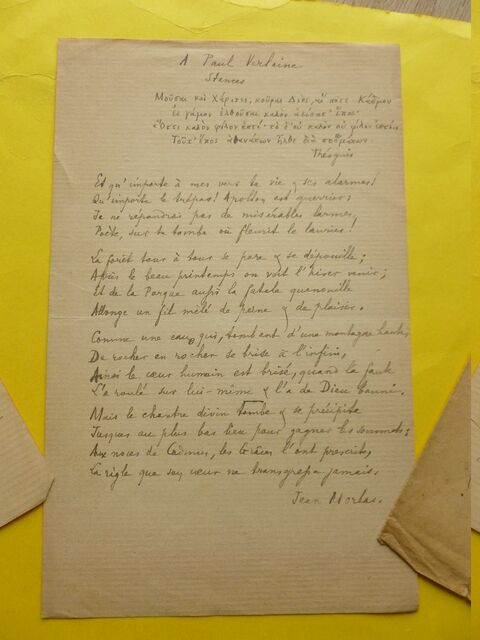 A Paul Verlaine
Stances
Μοῦσαι καὶ Χάριτες, κοῦραι Διός, αἵ ποτε Κάδμου
ἐς γάμον ἐλθοῦσαι καλὸν ἀείσατ' ἔπος·
Ὅττι καλὸν φίλον ἐστί· τὸ δ' οὐ καλὸν οὐ φίλον ἐστίν.
Τοῦτ' ἔπος ἀθανάτων ἦλθε διὰ στομάτων.
Théognis
Et qu'importe à mes vers ta vie & ses alarmes!
Qu'importe le trépas! Apollon est guerrier;
Je ne répandrai pas de misérables larmes,
Poète, sur ta tombe où fleurit le laurier!
La forêt tour à tour se pare & se dépouille;
Après le beau printemps on voit l'hiver venir;
Et de la Parque aussi la fatale quenouille
Allonge un fil mêlé de peine & de plaisir.
Comme une eau qui, tombant d'une montagne haute,
De rocher en rocher se brise à l'infini,
Ainsi le cœur humain est brisé, quand la faute
L'a roulé sur lui-même & l'a de Dieu banni.
Mais le chantre divin tombe & se précipite
Jusques au plus bas lieu pour gagner les sommets;
Aux noces de Cadmus, les l'ont prescrite,
La règle que son cœur ne transgressa jamais.
Jean Moréas.